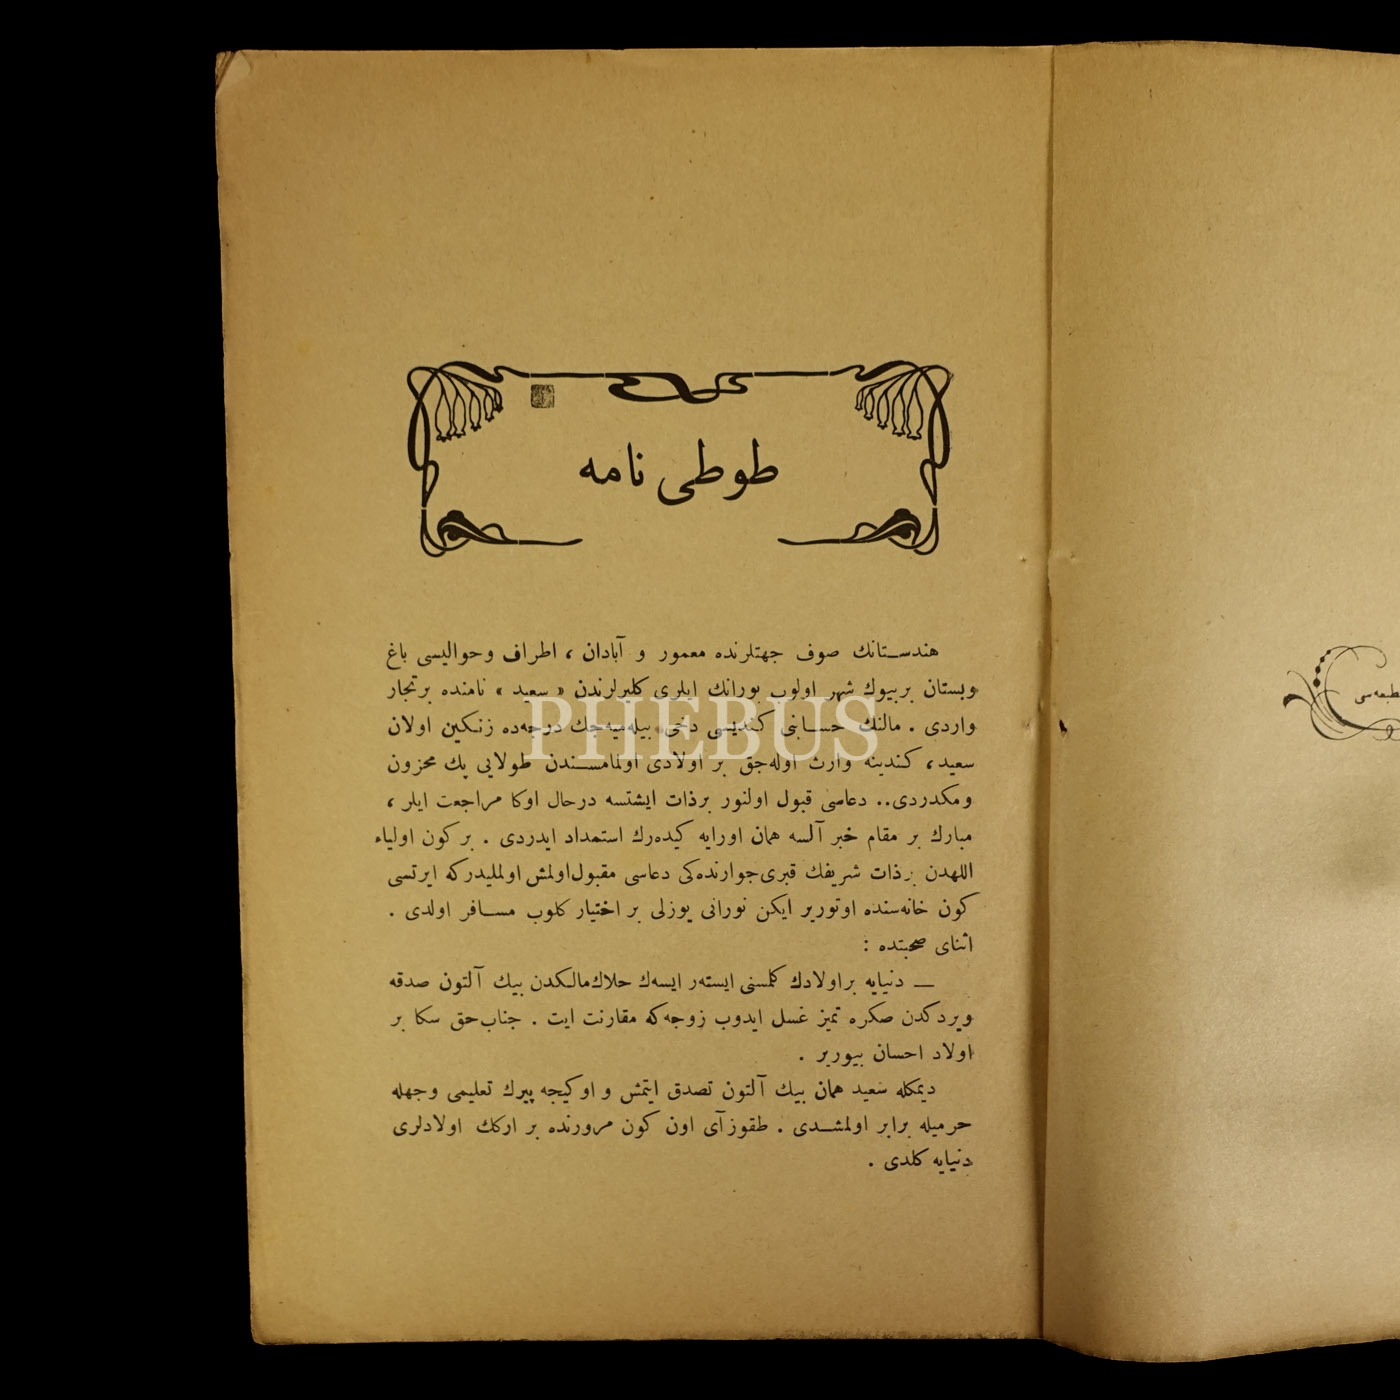 طوطی نامه
هندستانك صوف جهتلرنده معمور و آبادان ، اطراف وحوالیسی باغ
وبستان بربیوك شهر اولوب بورانك ایلری كلیرلرندن « سعید » نامنده برتجار
واردی . مالنك حسابنی كندیسی دخی بیله‌میه‌جك درجه‌ده زنكین اولان
سعید ، كندینه وارث اوله‌جق بر اولادی اولمامسندن طولایی پك محزون
ومكدردی.. دعاسی قبول اولنور برذات ایشتسه درحال اوكا مراجعت ایلر ،
مبارك بر مقام خبر آلسه همان اورایه كیده‌رك استمداد ایدردی . بركون اولیاء
اللهدن برذات شریفك قبری‌جوارنده‌كی دعاسی مقبول‌اولمش اولملیدركه ایرتسی
كون خانه‌سنده اوتوریر ایكن نورانی یوزلی بر اختیار كلوب مسافر اولدی .
اثنای صحبتده :
— دنیایه براولادك كلمسنی ایسته‌ر ایسه‌ك حلال‌مالكدن بیك آلتون صدقه
ویردكدن صكره تمیز غسل ایدوب زوجه‌كه مقارنت ایت . جناب‌حق سكا بر
اولاد احسان بیوریر .
دیمكله سعید همان بیك آلتون تصدق ایتمش و اوكیجه پیرك تعلیمی وجهله
حرمیله برابر اولمشدی . طقوزآی اون كون مرورنده بر اركك اولادلری
دنیایه كلدی .
PHEBUS